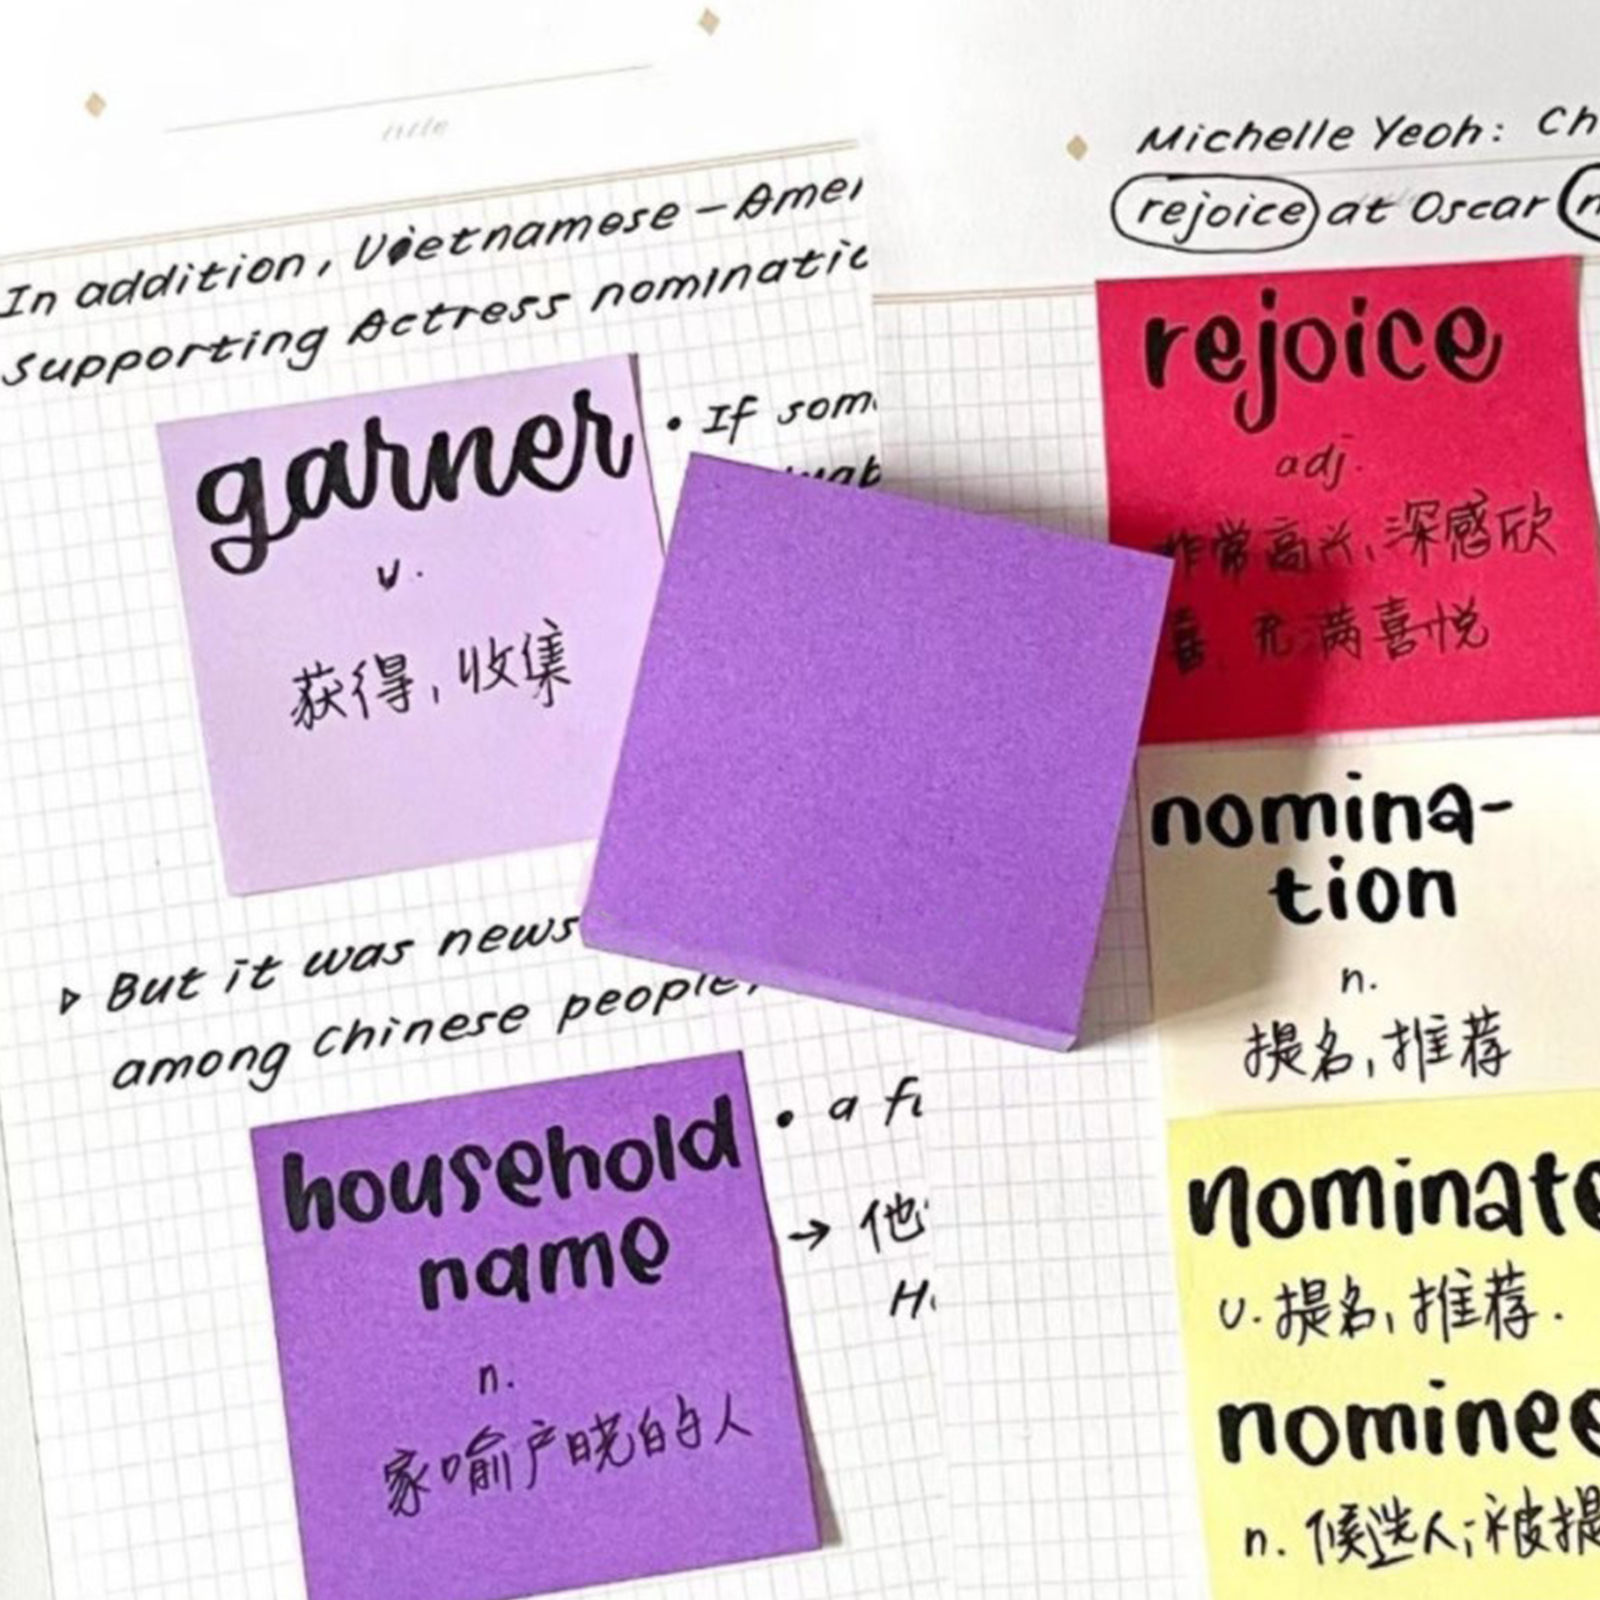 title
In addition, Vietnamese-Amer
Supporting Actress nominatic
garner
v.
获得,收集
• If som
But it was news
among chinese people,
household
name
n.
家喻户晓的人
• a fi
→ 他
H
Michelle Yeoh: Ch
rejoice at Oscar n
rejoice
adj.
非常高兴、深感欣
喜、充满喜悦
nomina-
tion
n.
提名,推荐
nominate
v. 提名,推荐.
nominee
n. 候选人;被提